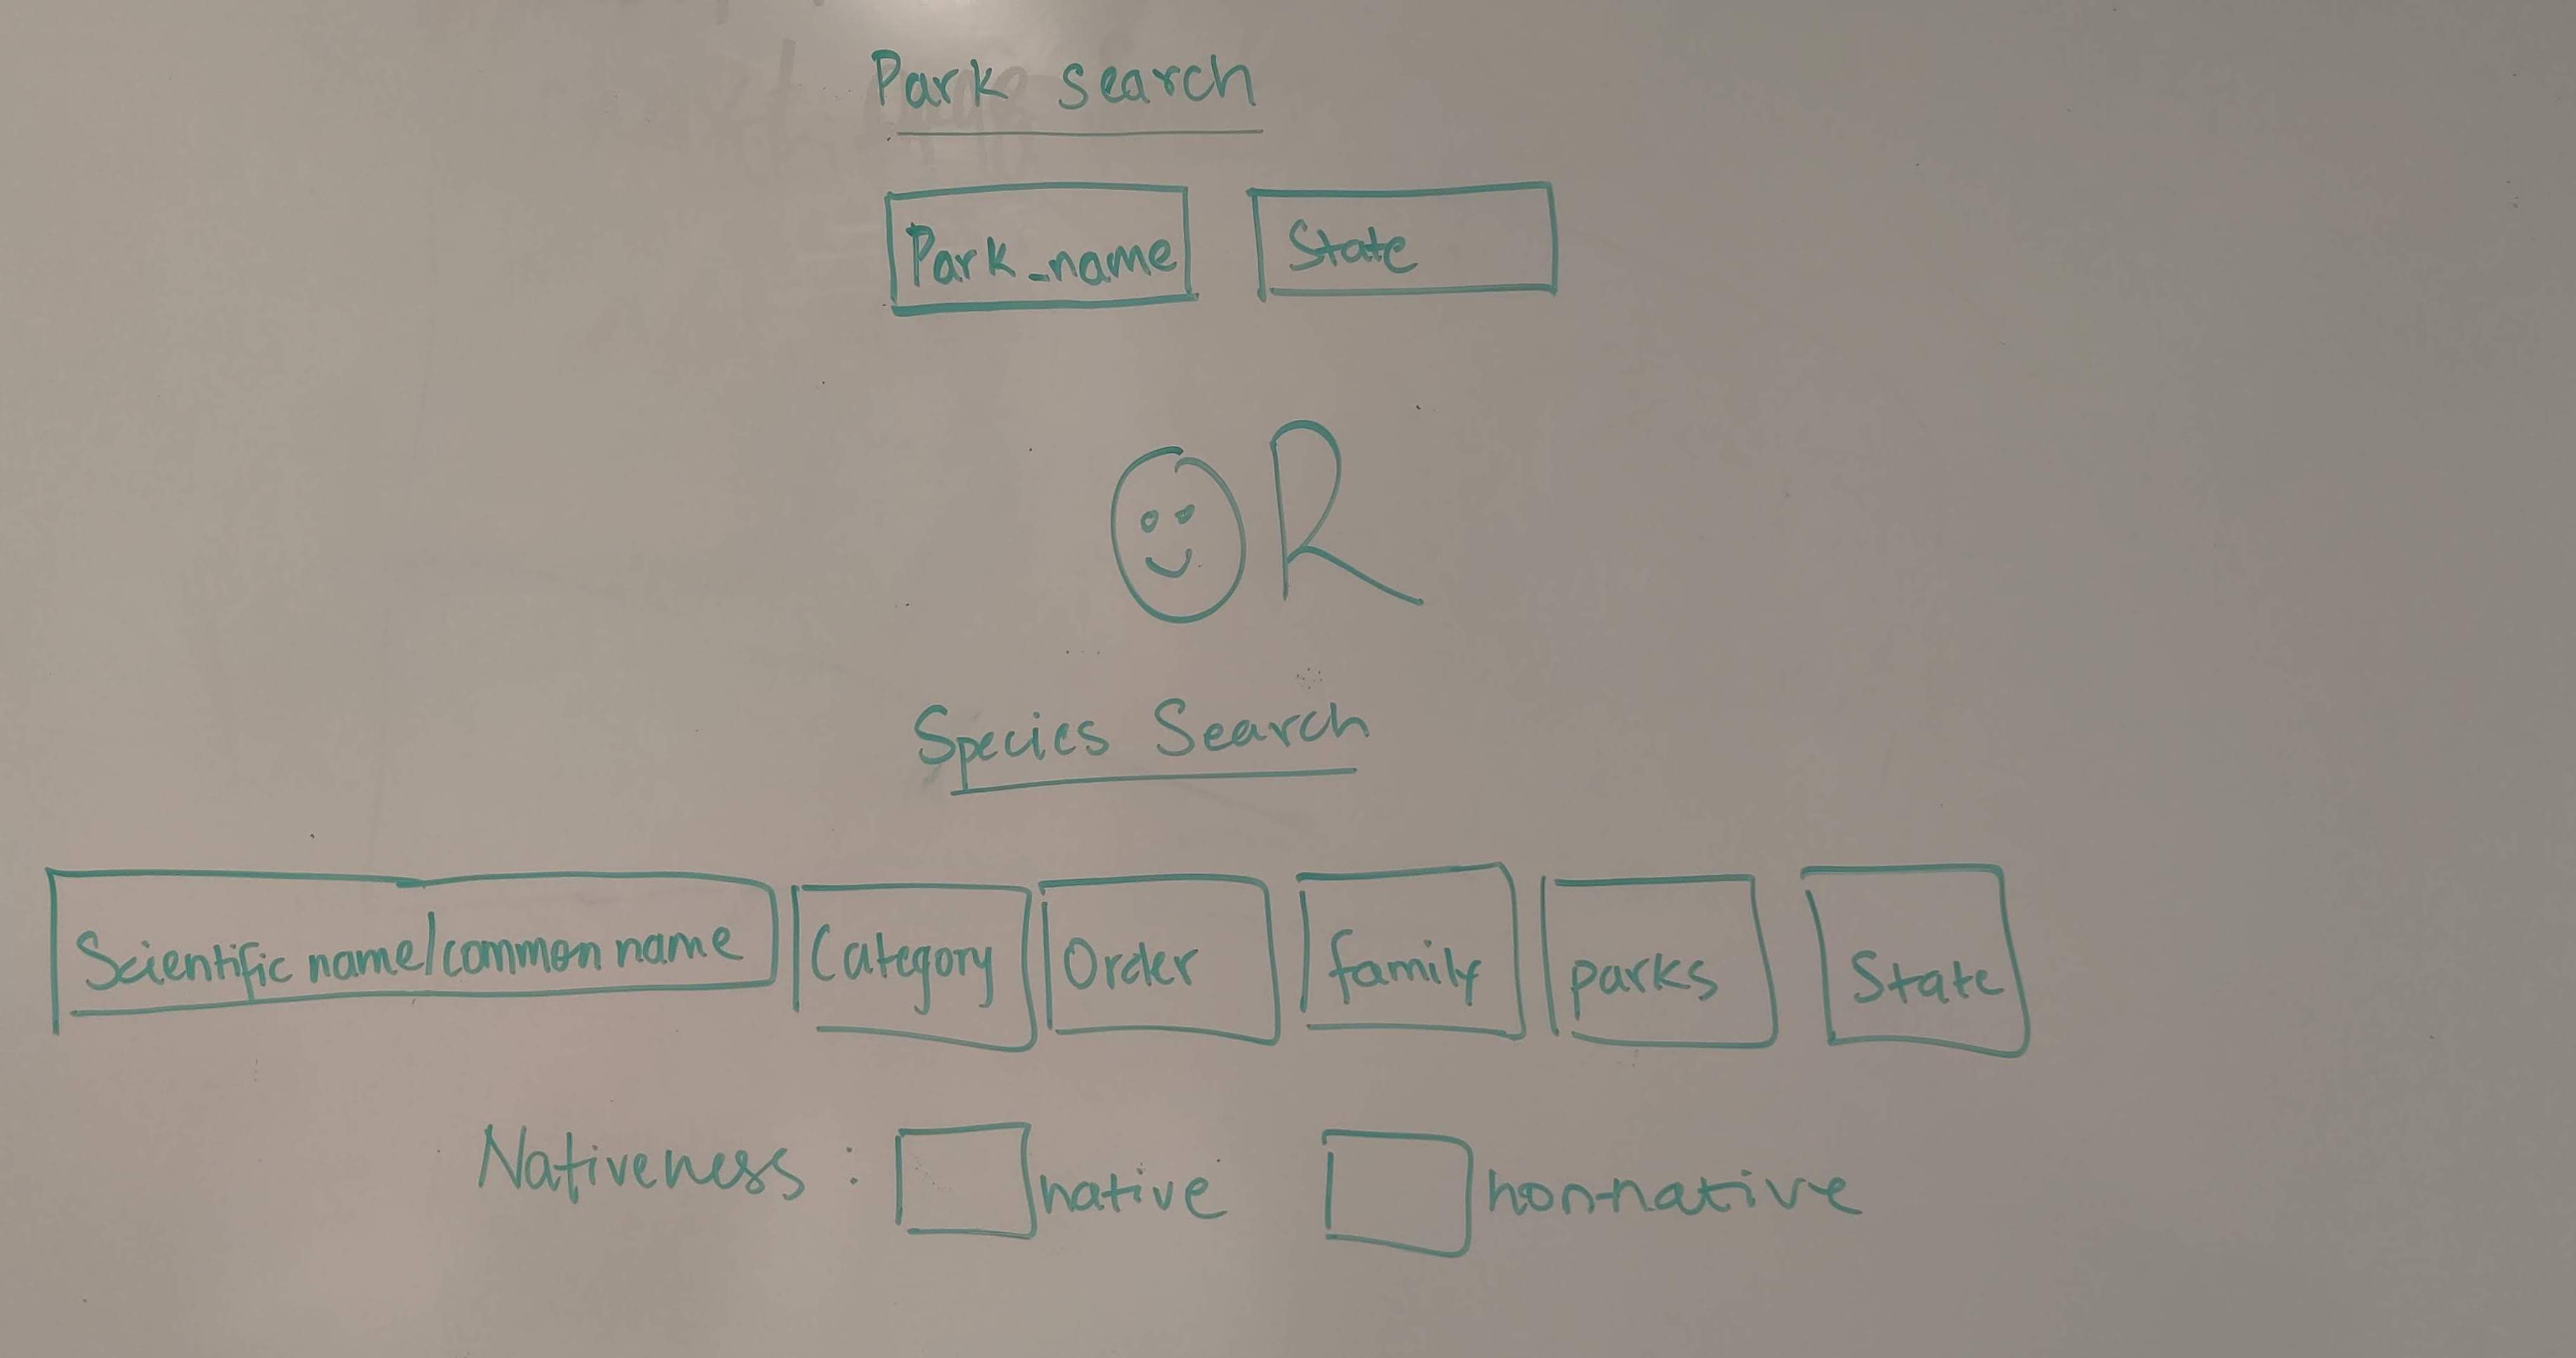 Park search
Park_name State
OR
Species Search
Scientific name/common name Category Order family parks State
Nativeness : native non-native